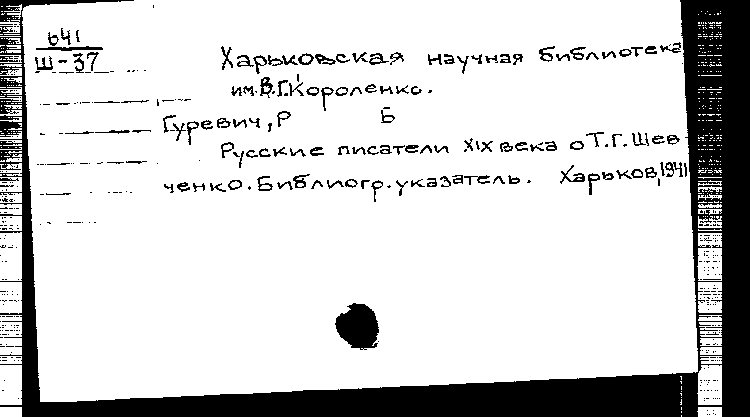 641
Ш-37
Харьковская научная библиотека
им.В.Г.Короленко.
Гуревич, Р Б
Русские писатели XIX века о Т.Г. Шев-
ченко. Библиогр. указатель. Харьков, 1941